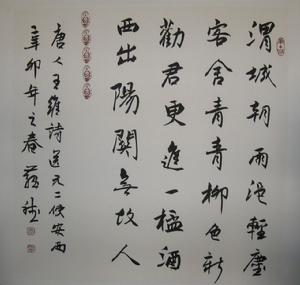 渭城朝雨浥輕塵
客舍青青柳色新
勸君更進一杯酒
西出陽關無故人
唐人王維詩送元二使安西
辛卯年之春